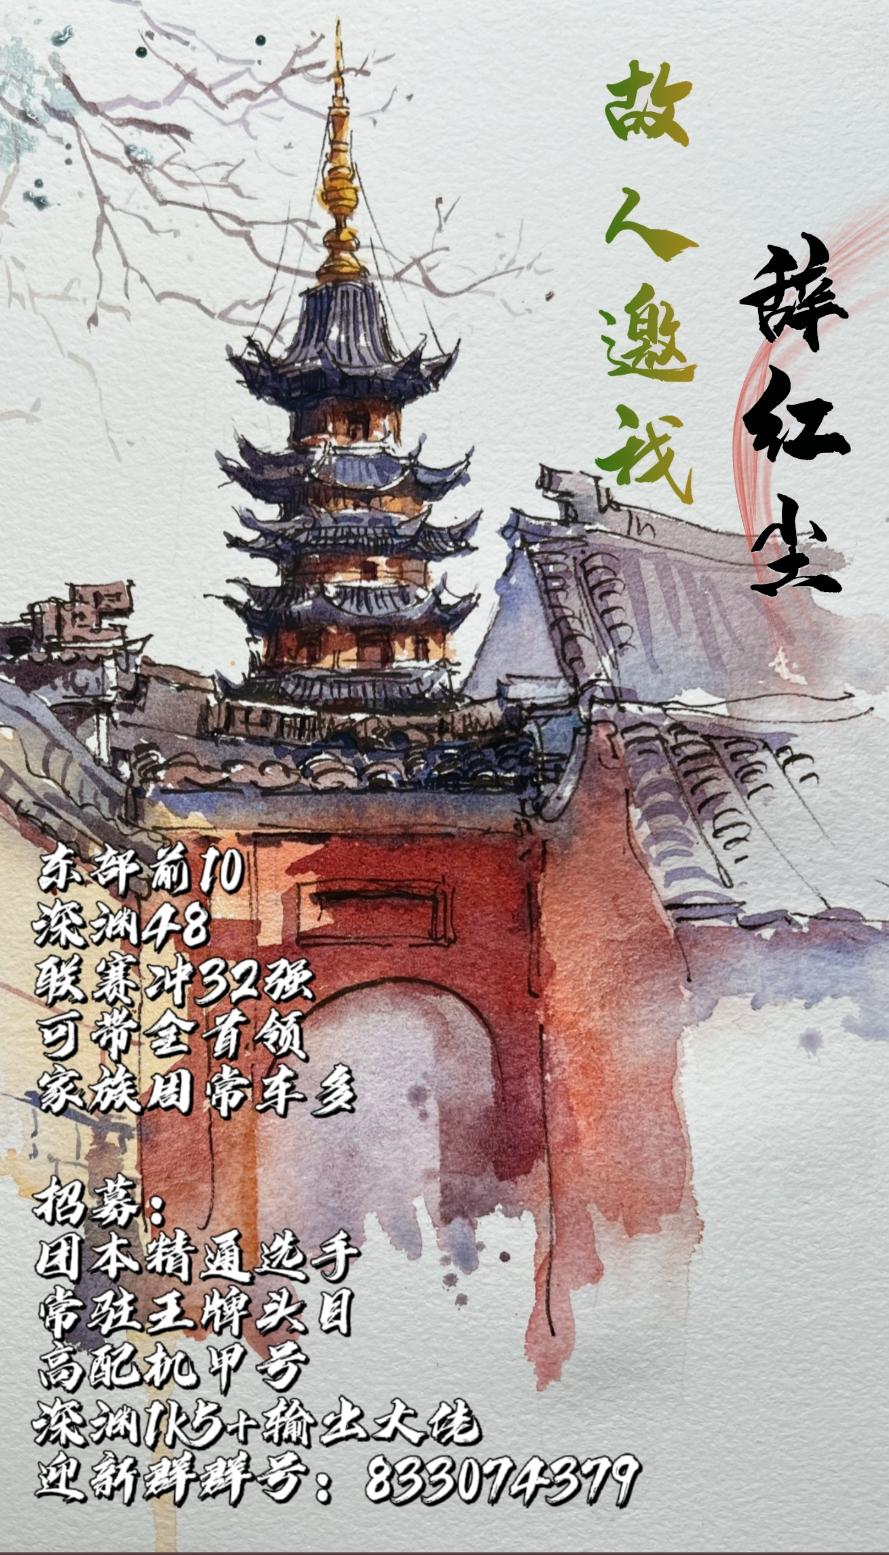 故人邀我
辞红尘
东部前10
深渊48
联赛冲32强
可带全首领
家族周常车多
招募：
团本精通选手
常驻王牌头目
高配机甲号
深渊1k5+输出大佬
迎新群群号：833074379